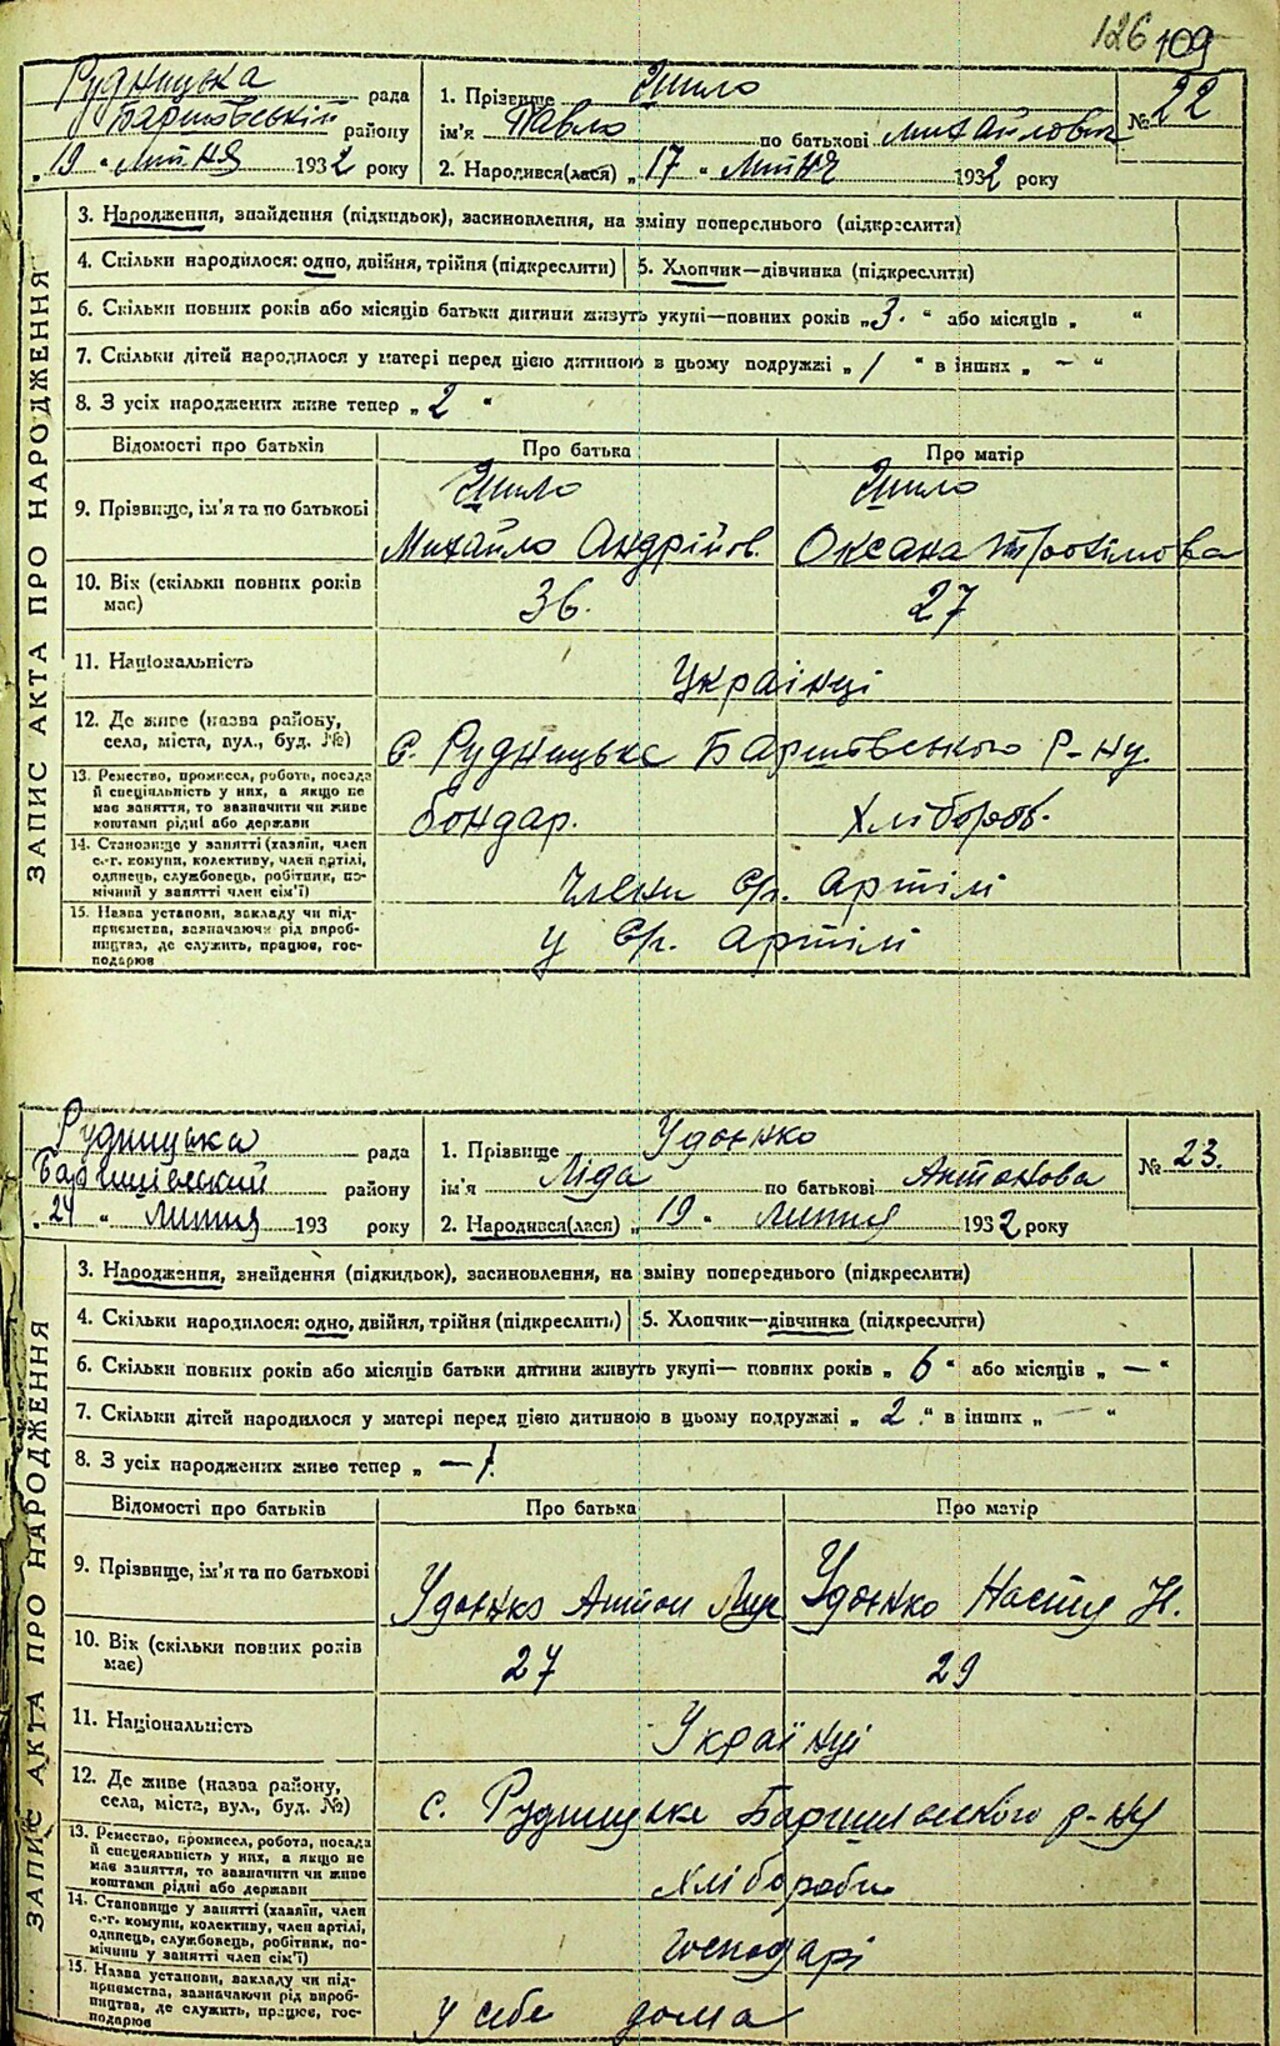 126 109
Рудницька рада
Баришівській району
„19“ липня 1932 року
1. Прізвище Шило
ім'я Павло по батькові Михайлович
2. Народився(лася) „17“ липня 1932 року
№ 22
ЗАПИС АКТА ПРО НАРОДЖЕННЯ
3. Народження, знайдення (підкидьок), засиновлення, на зміну попереднього (підкреслити)
4. Скільки народилося: одно, двійня, трійня (підкреслити) 5. Хлопчик—дівчинка (підкреслити)
6. Скільки повних років або місяців батьки дитини живуть укупі—повних років „3.“ або місяців „ “
7. Скільки дітей народилося у матері перед цією дитиною в цьому подружжі „1“ в інших „—“
8. З усіх народжених живе тепер „2“
Відомості про батьків Про батька Про матір
9. Прізвище, ім'я та по батькові Шило Михайло Андрійов. Шило Оксана Трохімова
10. Вік (скільки повних років має) 36. 27
11. Національність Українці
12. Де живе (назва району, села, міста, вул., буд. №) с. Рудницьке Баришівського р-ну.
13. Ремество, промисел, робота, посада й спеціяльність у них, а якщо не має заняття, то зазначити чи живе коштами рідні або держави бондар. Хлібороб.
14. Становище у занятті (хазяїн, член с.-г. комуни, колективу, член артілі, одинець, службовець, робітник, помічний у занятті член сім'ї) члени с/г. артілі
15. Назва установи, закладу чи підприємства, зазначаючи рід виробництва, де служить, працює, господарює у с/г. артілі
Рудницька рада
Баришівський району
„24“ липня 193 року
1. Прізвище Удо́нко
ім'я Ліда по батькові Антонова
2. Народився(лася) „19“ липня 1932 року
№ 23.
ЗАПИС АКТА ПРО НАРОДЖЕННЯ
3. Народження, знайдення (підкидьок), засиновлення, на зміну попереднього (підкреслити)
4. Скільки народилося: одно, двійня, трійня (підкреслити) 5. Хлопчик—дівчинка (підкреслити)
6. Скільки повних років або місяців батьки дитини живуть укупі— повних років „6“ або місяців „—“
7. Скільки дітей народилося у матері перед цією дитиною в цьому подружжі „2.“ в інших „—“
8. З усіх народжених живе тепер „—1.
Відомості про батьків Про батька Про матір
9. Прізвище, ім'я та по батькові Антон Настя Н.
10. Вік (скільки повних років має) 27 29
11. Національність Українці
12. Де живе (назва району, села, міста, вул., буд. №) с. Рудницьке Баришівського р-ну
13. Ремество, промисел, робота, посада й спецеяльність у них, а якщо не має заняття, то зазначити чи живе коштами рідні або держави хлібороби
14. Становище у занятті (хазяїн, член с.-г. комуни, колективу, член артілі, одинець, службовець, робітник, помічний у занятті член сім'ї) господарі
15. Назва установи, закладу чи підприємства, зазначаючи рід виробництва, де служить, працює, господарює у себе дома